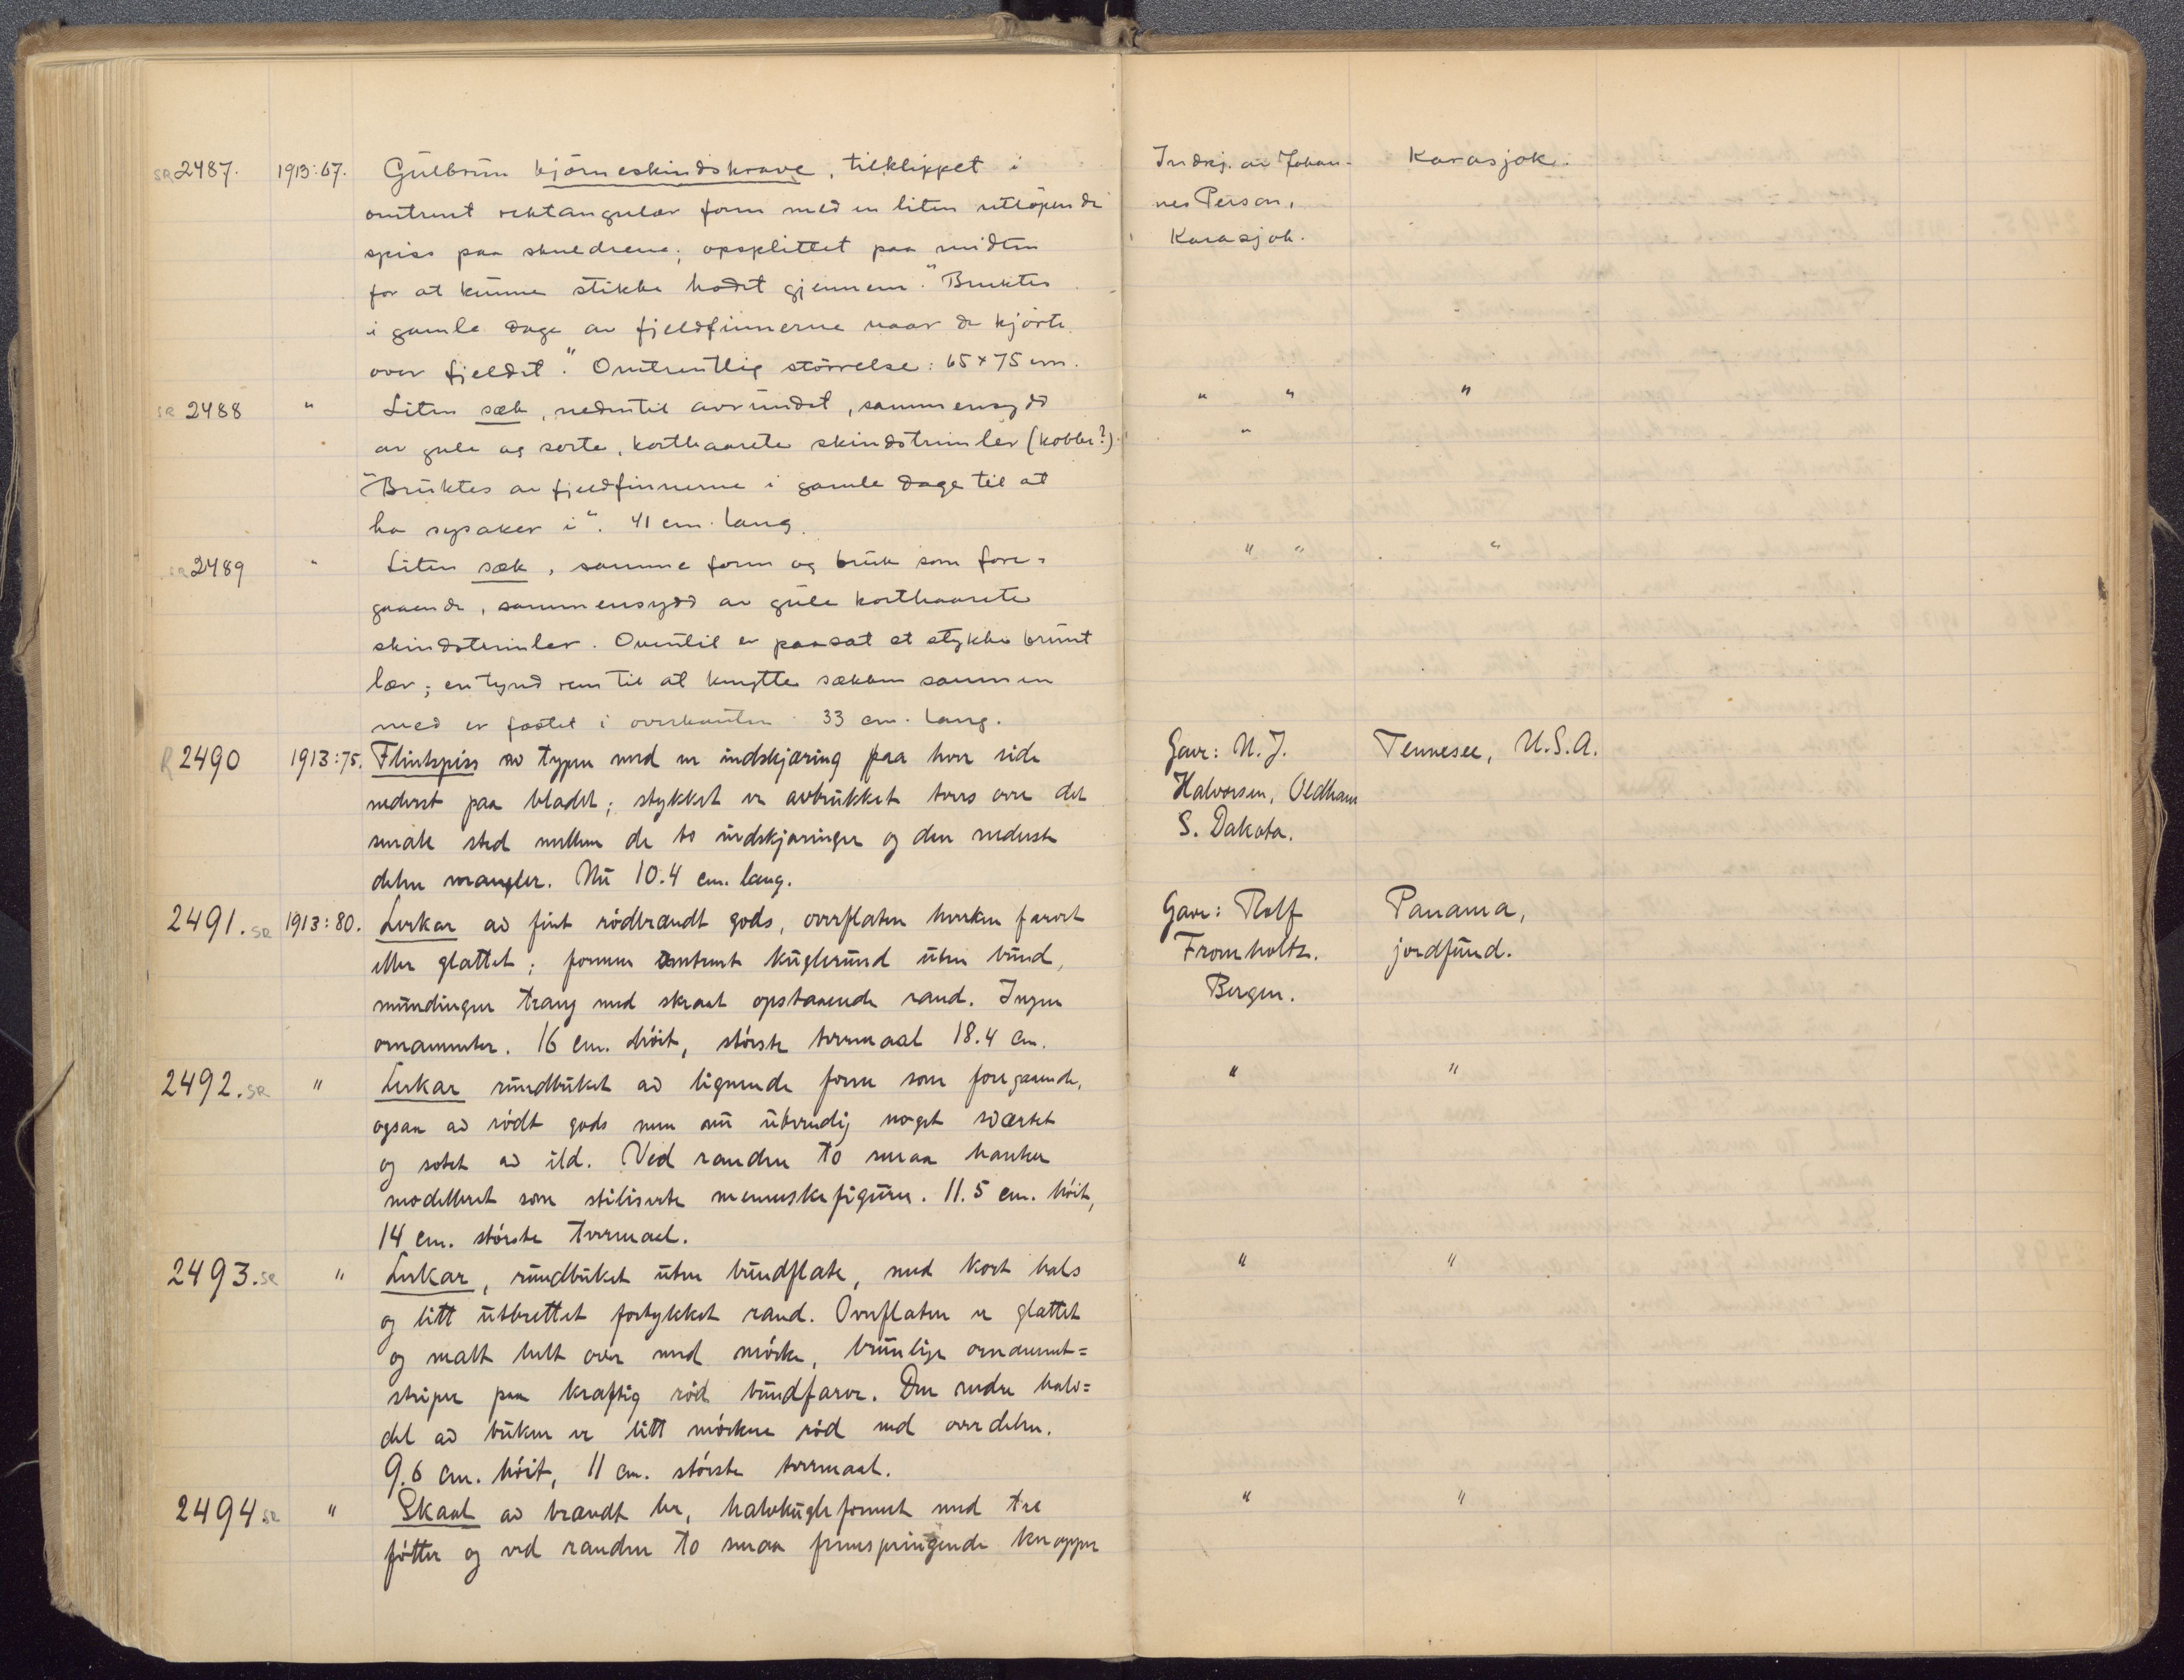 SR 2487. 1913:67. Gulbrun bjørneskindskrave, tilklippet i Indkj. av Johan- Karasjok.
omtrent rektangulær form med en liten utløpende nes Person,
spiss paa skuldrene; opsplittet paa midten Karasjok.
for at kunne stikke hodet gjennem. "Bruktes
i gamle dage av fjeldfinnerne naar de kjørte
over fjeldet". Omtrentlig størrelse: 65 x 75 cm.
SR 2488 " Liten sæk, nedentil avrundet, sammensydd " " "
av gule og sorte, korthaarete skindstrimler (kobbe?). "
"Bruktes av fjeldfinnerne i gamle dage til at
ha sysaker i". 41 cm. lang.
SR 2489 " Liten sæk, samme form og bruk som fore- " " "
gaaende, sammensydd av gule korthaarete
skindstrimler. Oventil er paasat et stykke brunt
lær; en tynd rem til at knytte sækken sammen
med er fæstet i overkanten. 33 cm. lang.
R 2490 1913:75. Flintspiss av typen med en indskjæring paa hver side Gave: N. J. Tennesee, U.S.A.
nederst paa bladet; stykket er avbrukket tvers over det Halvorsen, Oldham
smale sted mellem de to indskjæringer og den nederste S. Dakota.
delen mangler. Nu 10.4 cm. lang.
2491. SR 1913:80. Lerkar av fint rødbrændt gods, overflaten hverken farvet Gave: Rolf Panama,
eller glattet; formen omtrent kuglerund uten bund, Fromholtz. jordfund.
mundingen trang med skraat opstaaende rand. Ingen Bergen.
ornamenter. 16 cm. høit, største tvermaal 18.4 cm.
2492. SR " Lerkar rundbuket av lignende form som foregaaende, " "
ogsaa av rødt gods men nu utvendig noget sværtet
og sotet av ild. Ved randen to smaa hanker
modelleret som stiliserte menneskefigurer. 11.5 cm. høit,
14 cm. største tvermaal.
2493. SR " Lerkar, rundbuket uten bundflate, med kort hals " "
og litt utbrettet fortykket rand. Overflaten er glattet
og malt helt over med mørke, brunlige ornament=
striper paa kraftig rød bundfarve. Den nedre halv=
del av buken er litt mørkere rød end overdelen.
9.6 cm. høit, 11 cm. største tvermaal.
2494 SR " Skaal av brændt ler, halvkugleformet med tre " "
føtter og ved randen to smaa fremspringende knopper